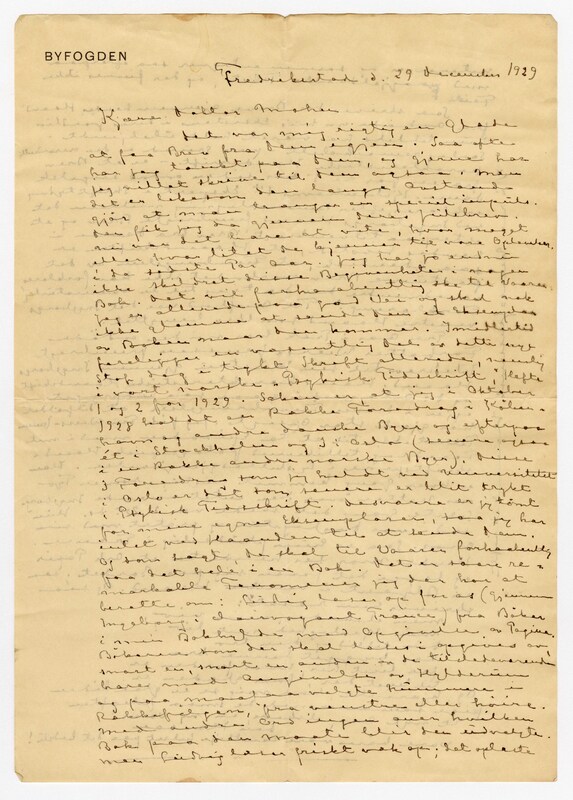 BYFOGDEN
Fredrikstad d. 29 December 1929
Kjære Doktor
Det var mig rigtig en Glæde
at faa Brev fra Dem igjen. Saa ofte
har jeg tænkt paa Dem, og gjerne har
jeg villet skrive til Dem ogsaa. Men
det er likesom den lange Avstand
gjør at man trænger en speciel impuls.
Den fik jeg da gjennem Deres Julebrev.
Nu var det bare at vite, hvor meget
eller hvor litet De kjender til vore Oplevelser
i de sidste Par Aar. Jeg har jo endnu
ikke skildret disse Begivenheter i nogen
Bok. Det vil forhaabentlig ske til Vaaren.
Jeg er allerede paa god Vei og skal nok
ikke glemme at sende Dem et Eksemplar
av Boken naar den kommer. Imidlertid
foreligger en væsentlig Del av dette nye
Stof i trykt Skrift allerede, nemlig
i vort norske "Psykisk Tidsskrift", Hefte
1 og 2 for 1929. Saken er at jeg i Oktober
1928 holdt en Række Foredrag i Kjøben-
havn og andre danske Byer og efterpaa
ét i Stockholm og 3 i Oslo (senere ogsaa
i en Række andre norske Byer). Disse
3 Foredrag som jeg holdt ved Universitetet
i Oslo er det som senere er blit trykt
i Psykisk Tidsskrift. Desværre er jeg tømt
for mine egne Eksemplarer, saa jeg har
intet ved Haanden til at sende Dem.
Og som sagt, De skal til Vaaren forhaabentlig
faa det hele i en Bok. Det er svære
mærkelige Fenomener jeg der har at
berette om: Ludvig læser op for os (gjennem
Ingeborg i clairvoyant Trance) fra Bøker
i min Bokhylde med Opgivelse av Pagina.
Bøkerne som der skal læses i opgives av
snart en, snart en anden av de tilstedeværende
bare ved Angivelse av Hylderum
og paa maafaa valgte Nummere i
Rækkefølgen, fra venstre eller høire.
Med andre Ord ingen aner hvilken
Bok paa den Maate blir den utvalgte.
Men Ludvig læser friskt væk op; det oplæste